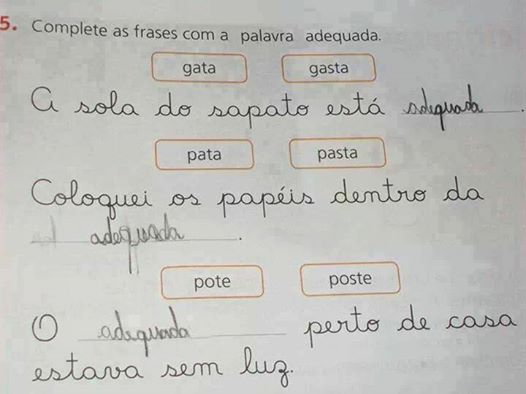 5. Complete as frases com a palavra adequada.
gata gasta
A sola do sapato está adequada.
pata pasta
Coloquei os papéis dentro da
adequada.
pote poste
O adequada perto de casa
estava sem luz.